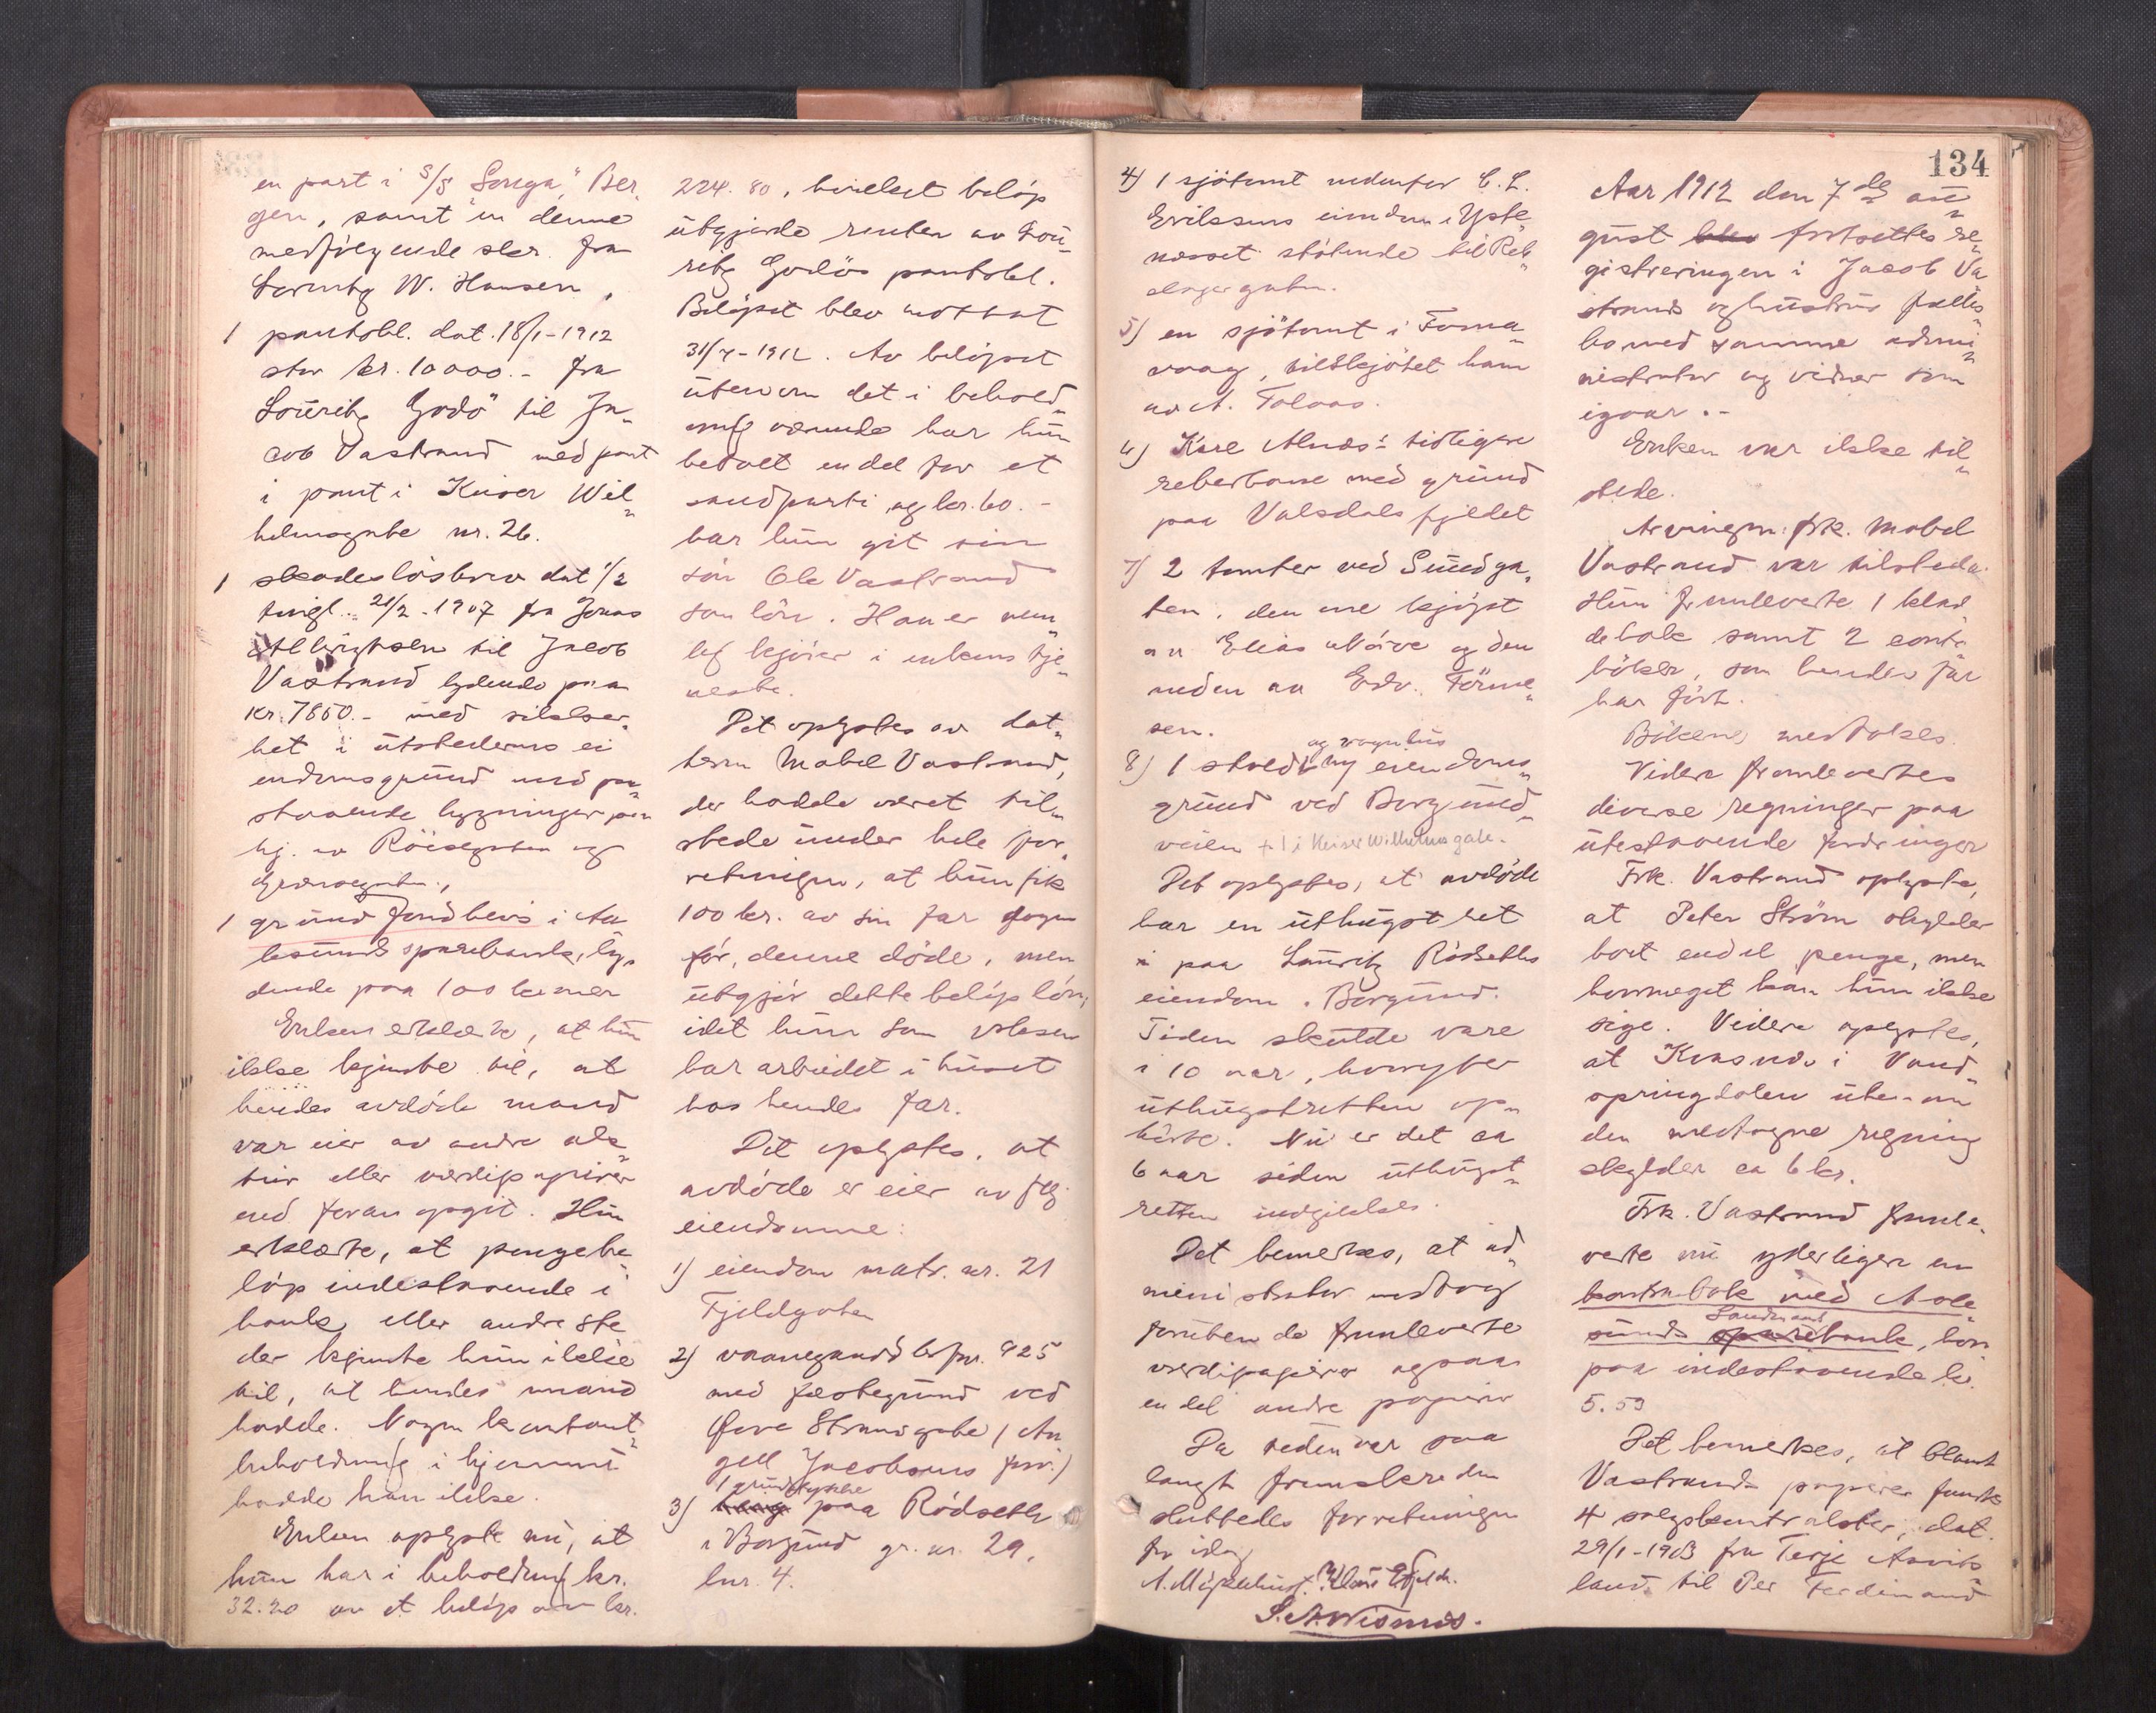 en part i S/S "Songa", Ber
gen, samt en denne
medfølgende skr. fra
W. Hansen,
1 pantobl. dat. 18/1-1912
stor kr. 10000.- fra
Louritz Godø til Ja„
cob Vastrand med pant
i pant i Keiser Wil„
helmsgate nr. 26.
1 skadesløsbrev dat 1/2
tingl. 21/2-1907 fra Jonas
til Jacob
Vastrand lydende paa
kr. 7850.- med sikker„
het i utstederens ei
endomsgrund med paa„
staaende bygninger paa
hj. av Röisegaten og
1 grundfondbevis i Aa
lesunds sparebank, ly„
dende paa 100 kroner
Enken erklærte, at hun
ikke kjendte til, at
hendes avdøde mand
var eier av andre ak„
tier eller værdipapirer
end foran opgit. Hun
erklærte, at pengebe„
løp indestaaende i
bank eller andre ste
der kjendte hun ikke
til, at hendes mand
hadde. Nogen kontant„
beholdning i hjemmet
hadde han ikke.
Enken oplyste nu, at
hun har i beholdning kr.
32.20 av et beløp av kr.
224.80, hvilket beløp
utgjorde renten av Lou„
ritz Godös pantobl.
Beløpet blev mottat
31/7-1912. Av beløpet
utenom det i behold„
ning værende har hun
betalt endel for et
sandparti, og kr. 60.-
har hun git sin
søn Ole Vastrand
som løn. Han er nem„
lig kjører i enkens tje„
neste.
Det oplystes av dat„
teren Mabel Vastrand,
der hadde været til„
stede under hele for„
retningen, at hun fik
100 kr. av sin far dagen
før, denne døde, men
utgjør dette beløp løn,
idet hun som voksen
har arbeidet i huset
hos hendes far.
Det oplystes, at
avdøde er eier av flg.
eiendomme:
1) eiendom matr. nr. 21
Fjeldgaten
2) vaanegaard br.pr. 925
med fæstegrund ved
Øvre Strandgate (An
gell Jacobsens )
1 grundstykke
3) paa Rödseth
i Borgund gr. nr. 29,
bnr. 4.
134
4) 1 sjötomt nedenfor C. L.
Erikssens eiendom i Yste
næsset støtende til Reb„
slagergaten.
5) en sjötomt i Fosna„
vaag, tilskjötet ham
av A. Tolaas.
6) Kare Alnæs's tidligere
reberbane med grund
paa Volsdalsfjeldet
7) 2 tomter ved Sundga„
ten, den ene kjøpt
av Elias Nørve og den
anden av Edv. Tønne„
sen.
og vognhus
8) 1 stald, ny eiendoms„
grund ved Borgund„
veien + 1 i Keiser Wilhelms gate.
Det oplystes, at avdøde
har en uthugstret
i paa Lauritz Rödseths
eiendom i Borgund.
Tiden skulde vare
i 10 aar, hvorefter
uthugstretten op„
hørte. Nu er det ca
6 aar siden uthugst„
retten indgikkes.
Det bemerkes, at ad„
ministrator mottog
foruten de fremleverte
værdipapirer ogsaa
endel andre papirer
Da tiden var saa
langt fremskreden
sluttedes forretningen
for idag
S. A. Wisnes.
Aar 1912 den 7de au„
gust blev fortsettes re„
gistreringen i Jacob Va
strands og hustrus fælles
bo med samme admi„
nistrator og vidner som
igaar.-
Enken var ikke til„
stede.
Arvingen: frk. Mabel
Vastrand var tilstede.
Hun fremleverte 1 klad
debok samt 2 conto
bøker, som hendes far
har ført.
Bökene medtokes.
Videre fremlevertes
diverse regninger paa
utestaaende fordringer
Frk. Vastrand oplyste,
at Peter Strøm skylder
bort endel penge, men
hvormeget kan hun ikke
sige. Videre oplystes,
at i Vand„
springdalen uten om
den medtagne regning
skylder ca 6 kr.
Frk. Vastrand fremle„
verte nu yderligere en
kontrabok med Aale„
Landmands
sunds sparebank, hvor
paa indestaaende kr.
5.53
Det bemerkes, at blandt
Vastrands papirer fandtes
4 salgskontrakter, dat.
29/1-1903 fra Terje Aarvik
land til Per Ferdinand